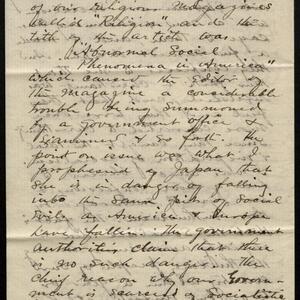 of our religious Magazines
called "Religion" and the
title of the article was
"Abnormal Social
Phenomena in America"
which caused the Editor of
the Magazine a considerable
trouble being summoned
by a government office &
examined & so forth. the
point on issue was what I
prophesied of Japan that
she is in danger of falling
into the same pits of social
evils as America & Europe
have fallen. The government
authorities claim that there
is no such danger. The
chief reason why our Govern-
ment is scared of Socialistic